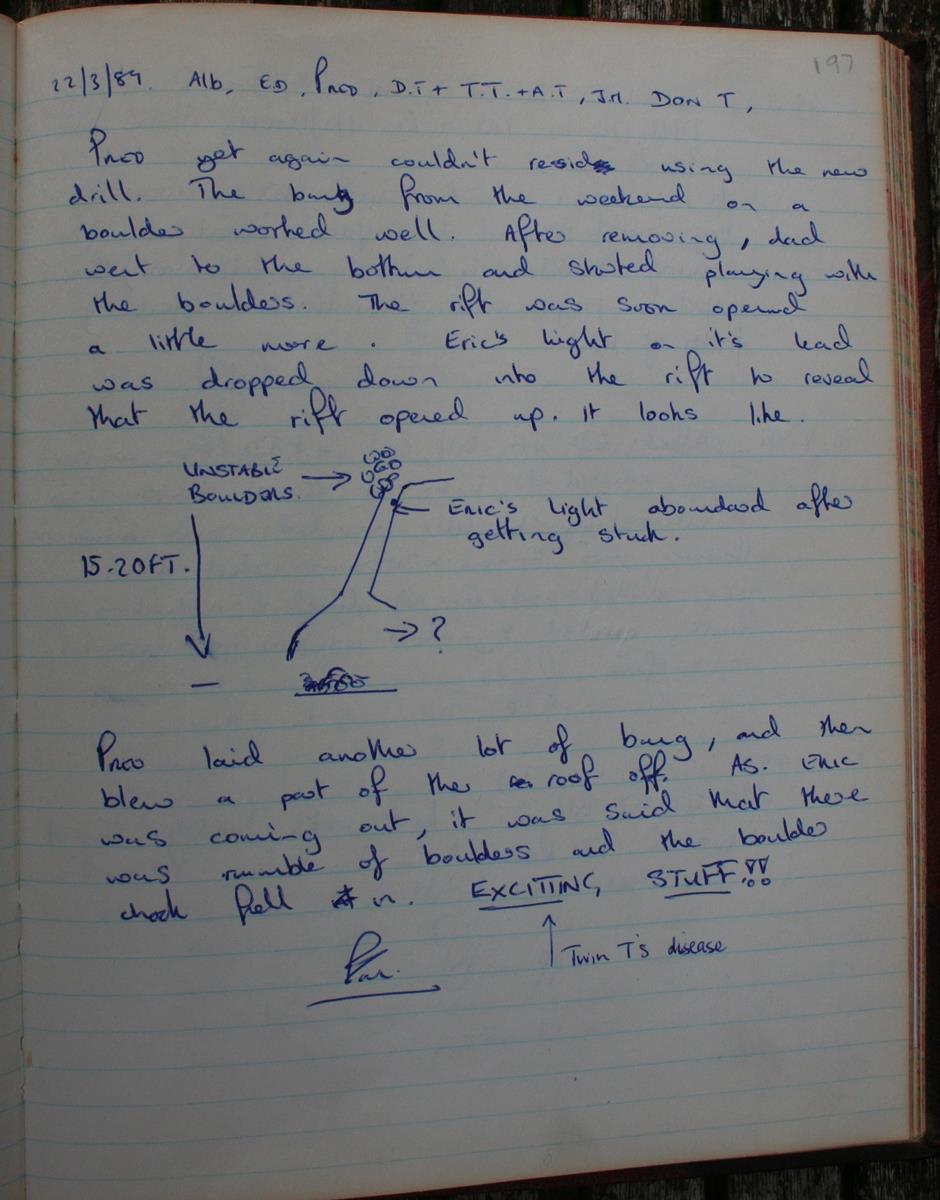 197
22/3/89. Alb, E.D, Prod, D.T + T.T. + A.T, J.M. DON T,
yet again couldn't using the new
drill. The bang from the weekend on a
boulder worked well. After removing, dad
went to the bottom and started playing with
the boulders. The rift was soon opened
a little more. Eric's light on it's lead
was dropped down into the rift to reveal
that the rift opened up. it looks like.
UNSTABLE
BOULDERS.
Eric's light aboundard after
getting stuck.
15-20FT.
?
laid another lot of bang, and then
blew a part of the roof off. As. Eric
was coming out, it was said that there
was rumble of boulders and the boulder
chock fell in. EXCITTING STUFF!!
Twin T's disease